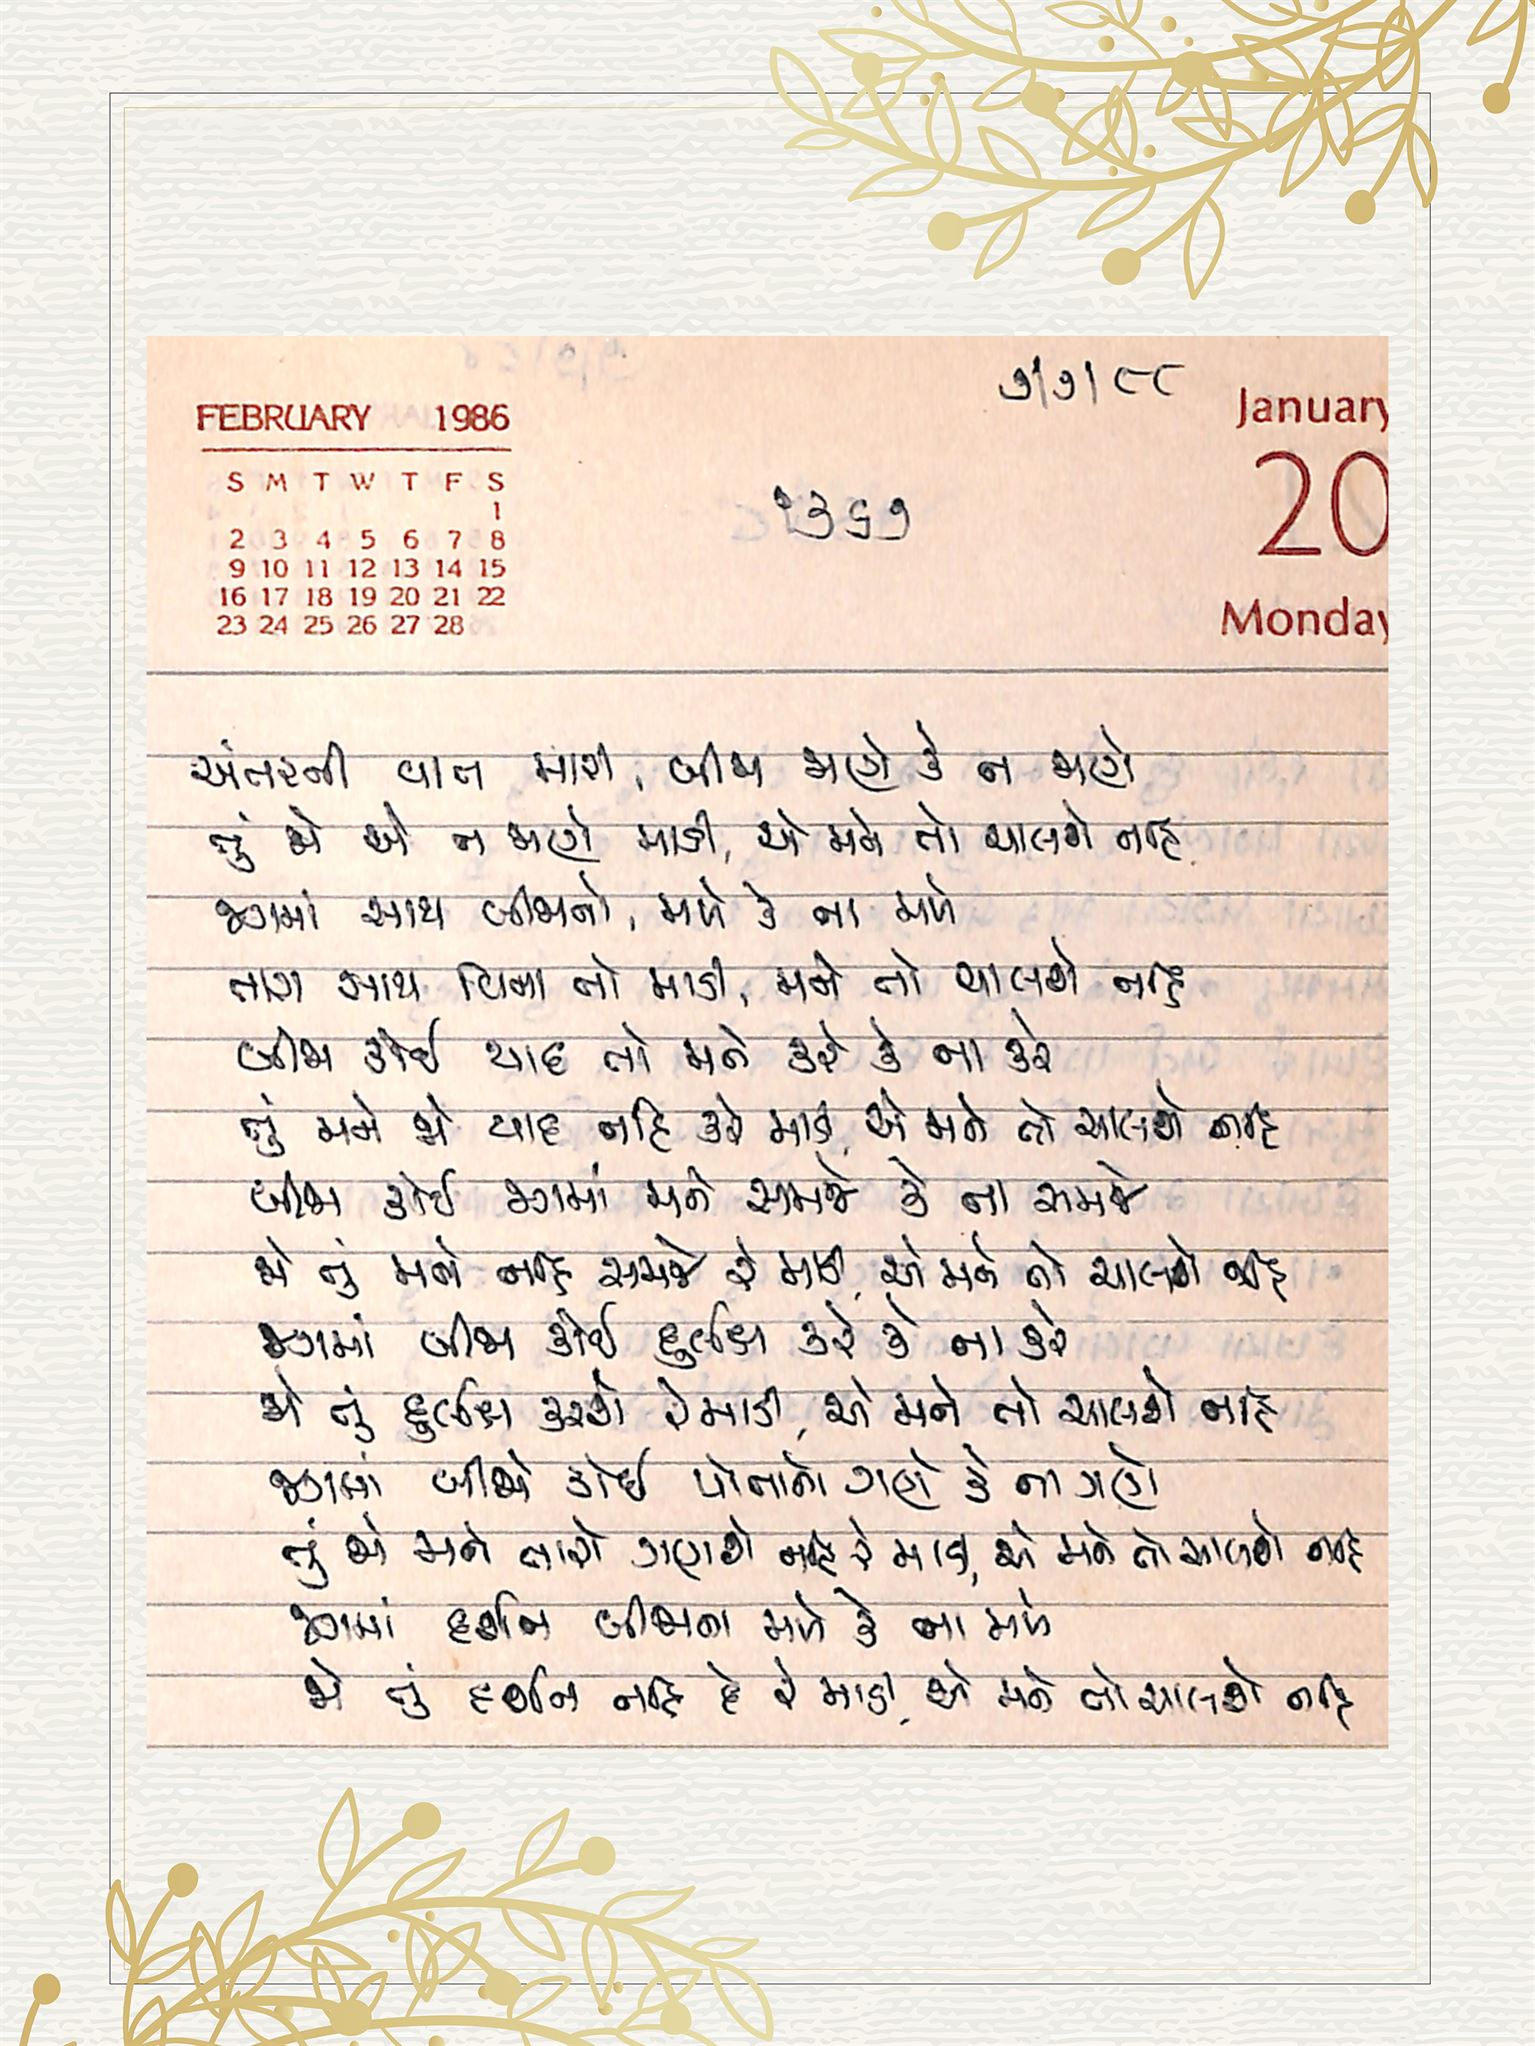 ૭/૭/૮૮
FEBRUARY 1986
January
S M T W T F S
1
2 3 4 5 6 7 8
9 10 11 12 13 14 15
16 17 18 19 20 21 22
23 24 25 26 27 28
20
૧૩૬૭
Monday
અંતરની વાત મારી, બીજા જાણે કે ન જાણે
તું જો એ ન જાણે માડી, એ મને તો ચાલશે નહિ
જગમાં સાથ બીજાનો, મળે કે ના મળે
તારા સાથ વિના તો માડી, મને તો ચાલશે નહિ
બીજા કોઈ યાદ તો મને કરે કે ના કરે
તું મને જો યાદ નહિ કરે માડી, એ મને તો ચાલશે નહિ
બીજા કોઈ જગમાં મને સમજે કે ના સમજે
જો તું મને નહિ સમજે રે માડી, એ મને તો ચાલશે નહિ
જગમાં બીજા કોઈ દુર્લક્ષ કરે કે ના કરે
જો તું દુર્લક્ષ કરશે રે માડી, એ મને તો ચાલશે નહિ
જગમાં બીજો કોઈ પોતાનો ગણે કે ના ગણે
તું જો મને તારો ગણશે નહિ રે માડી, એ મને તો ચાલશે નહિ
જગમાં દર્શન બીજાના મળે કે ના મળે
જો તું દર્શન નહિ દે રે માડી, એ મને તો ચાલશે નહિ